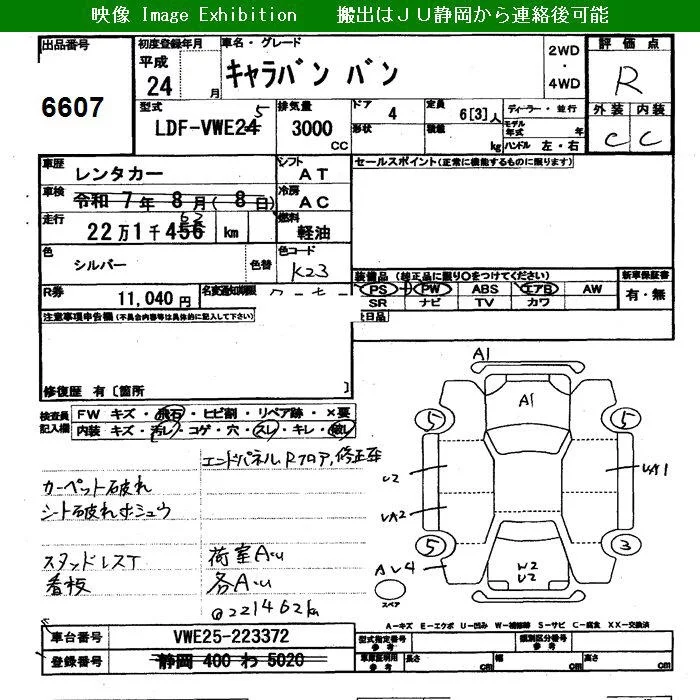 映像 Image Exhibition 搬出はＪＵ静岡から連絡後可能
出品番号
6607
初度登録年月
平成
24 月
車名・グレード
キャラバン バン
2WD
・
4WD
評価点
R
型式
LDF-VWE24 5
排気量
3000
CC
ドア
4
形状
定員
6[3]人
積載
kg
ディーラー・並行
モデル年式 年
ハンドル 左・右
外装 内装
C C
車歴
レンタカー
シフト
AT
セールスポイント(正常に機能するものに限ります)
車検
令和 7年 8月( 8日)
冷房
AC
走行
22万1千456 62 km
燃料
軽油
色
シルバー
色替
色コード
K23
R券
11,040円
名変通知期限
装備品 (純正品に限り○をつけてください)
PS PW ABS エアB AW
SR ナビ TV カワ
新車保証書
有・無
注意事項申告欄(不具合内容等は具体的に記入して下さい)
修復歴 有〔箇所 〕
検査員記入欄
FW キズ・飛石・ヒビ割・リペア跡・×要
内装 キズ・汚レ・コゲ・穴・スレ・キレ・破レ
エンドパネル、Rフロア、修正歪
カーペット破れ
シート破れホシュウ
スタッドレスT
看板
荷室A・u
各A・u
@221462km
A1
A1
5
5
U2
UA1
UA2
5
3
AU4
W2
U2
スペア
A－キズ E－エクボ U－凹み W－補修跡 S－サビ C－腐食 XX－交換済
車台番号
VWE25-223372
登録番号
静岡 400 わ 5020
型式指定番号
参考
類別区分番号
参考
車庫証明用
参考
長さ cm
幅 cm
高さ cm